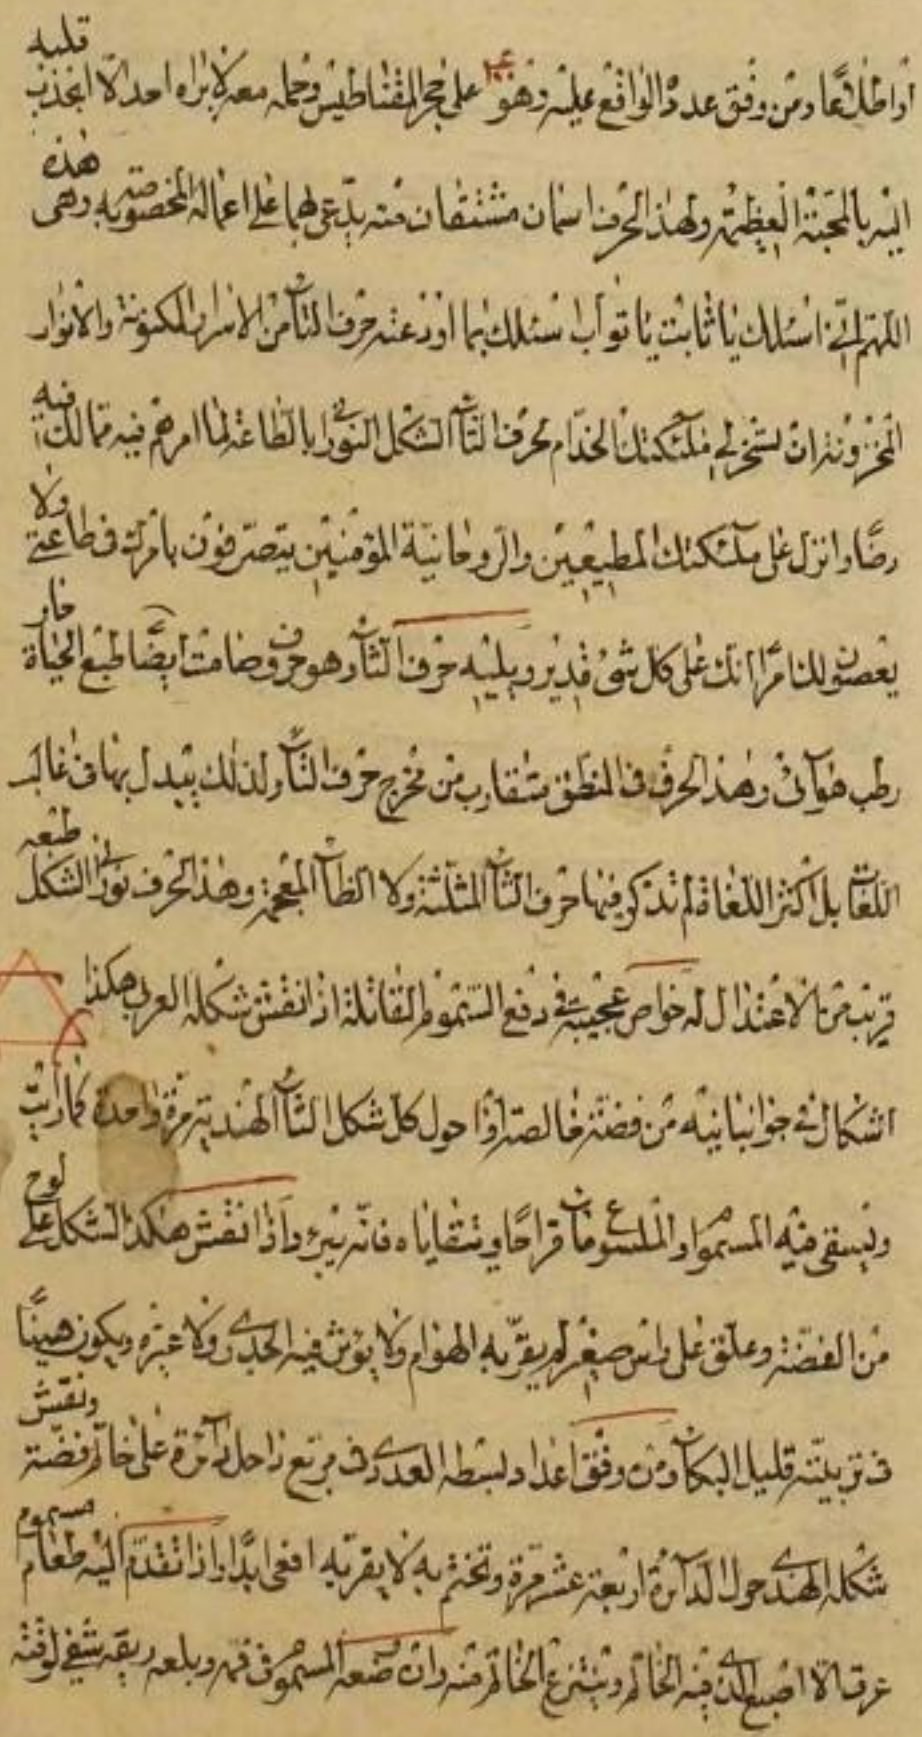 أو اطلاعا ومن وفق عدد الواقع عليه وهو على حجر المقناطيس وحمله معه لا يراه احد الا انجذب قلبه
اليه بالمحبة العظيمة ولهذا الحرف اسمان مشتقان منه يدعى بهما على اعماله المخصوصة به وهى هذه
اللهم انى اسئلك يا ثابت يا تواب اسئلك بما اودعته حرف التآء من الاسرار المكنونة والانوار
المخزونة ان تسخر لى ملئكتك الخدام لحرف التآء الشكل النورانى بالطاعة لما امرهم فيه مما لك فيه
رضا وانزل على ملئكتك المطيعين والروحانية المؤمنين يتصرفون بامرك فى طاعتى ولا
يعصون لنا امرا انك على كل شئ قدير ويليه حرف الثآء وهو حرف وصامت ايضا طبع الحياة حار
رطب هوآئى وهذا الحرف فى النطق متقارب من مخرج حرف التآء ولذلك يتبدل بها فى غالب
اللغات بل اكثر اللغاة لم تذكر فيها حرف الثآء المثلثة ولا الظآء المعجمة وهذا الحرف نورانى الشكل طبعه
قريب من الاعتدال له خواص عجيبة فى دفع السموم القاتلة اذا نقش شكله العربى هكذا
اشكال فى جوانب انيه من فضة خالصة او حول كل شكل الثآء الهندية مرة واحدة كما رأيت
ويسقى فيه المسموم او الملسوع مآء قراحا ويتقاياه فانه يبرئ واذا نقش هكذا الشكل على لوح
من الفضة وعلق على راس صغير لم يقربه الهوام ولا يؤثر فيه الجدرى ولا غيره ويكون هينا
فى تربيته قليل البكآء ومن وفق اعداد بسطه العددى فى مربع داخل دآئرة على خاتم فضة ونقش
شكله الهندى حول الدآئرة اربعة عشر مرة وتختم به لا يقربه افعى ابدا واذا تقدم اليه طعام مسموم
عرق الاصبع الذى فيه الخاتم وينتزع الخاتم منه وان وضعه المسموم فى فمه وبلعه ريقه شفى لوقته